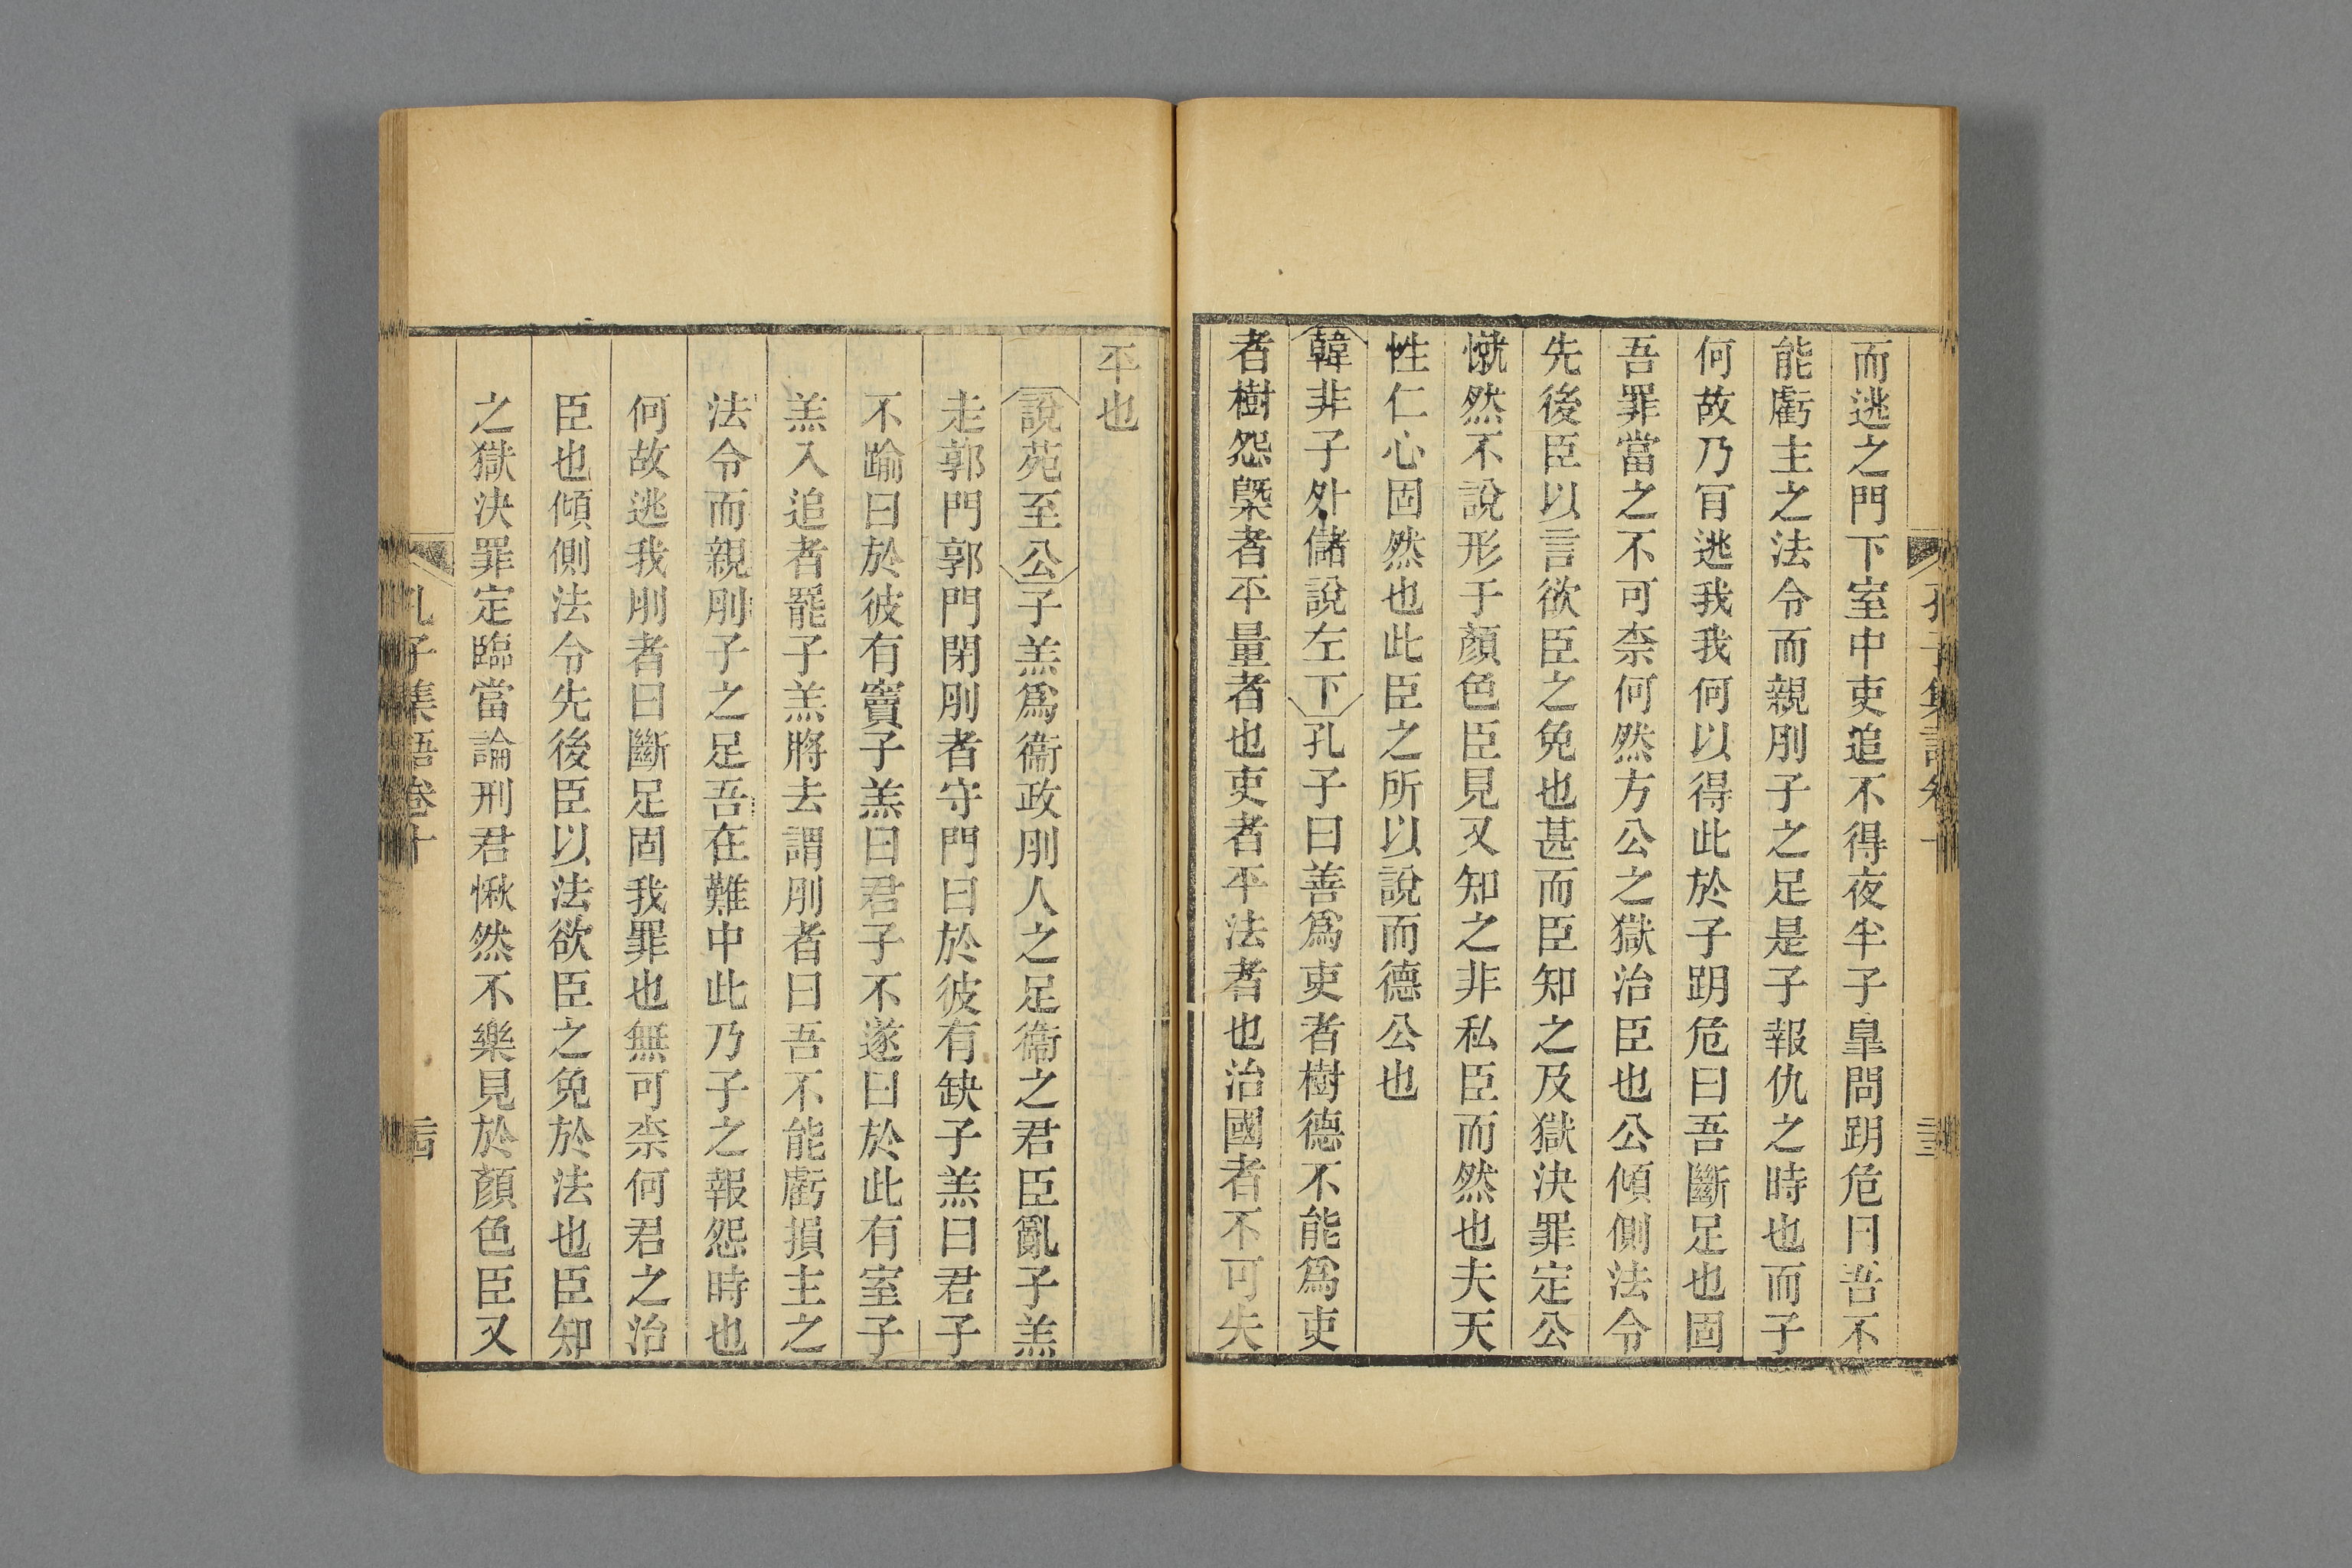 孔子集語卷十
而逃之門下室中吏追不得夜半子皐問跀危曰吾不
能虧主之法令而親刖子之足是子報仇之時也而子
何故乃肎逃我我何以得此於子跀危曰吾斷足也固
吾罪當之不可柰何然方公之獄治臣也公傾側法令
先後臣以言欲臣之免也甚而臣知之及獄決罪定公
憱然不說形于顏色臣見又知之非私臣而然也夫天
性仁心固然也此臣之所以說而德公也
韓非子外儲說左下孔子曰善爲吏者樹德不能爲吏
者樹怨槩者平量者也吏者平法者也治國者不可失
平也
說苑至公子羔爲衞政刖人之足衞之君臣亂子羔
走郭門郭門閉刖者守門曰於彼有缺子羔曰君子
不踰曰於彼有竇子羔曰君子不遂曰於此有室子
羔入追者罷子羔將去謂刖者曰吾不能虧損主之
法令而親刖子之足吾在難中此乃子之報怨時也
何故逃我刖者曰斷足固我罪也無可柰何君之治
臣也傾側法令先後臣以法欲臣之免於法也臣知
之獄決罪定臨當論刑君愀然不樂見於顏色臣又
孔子集語卷十